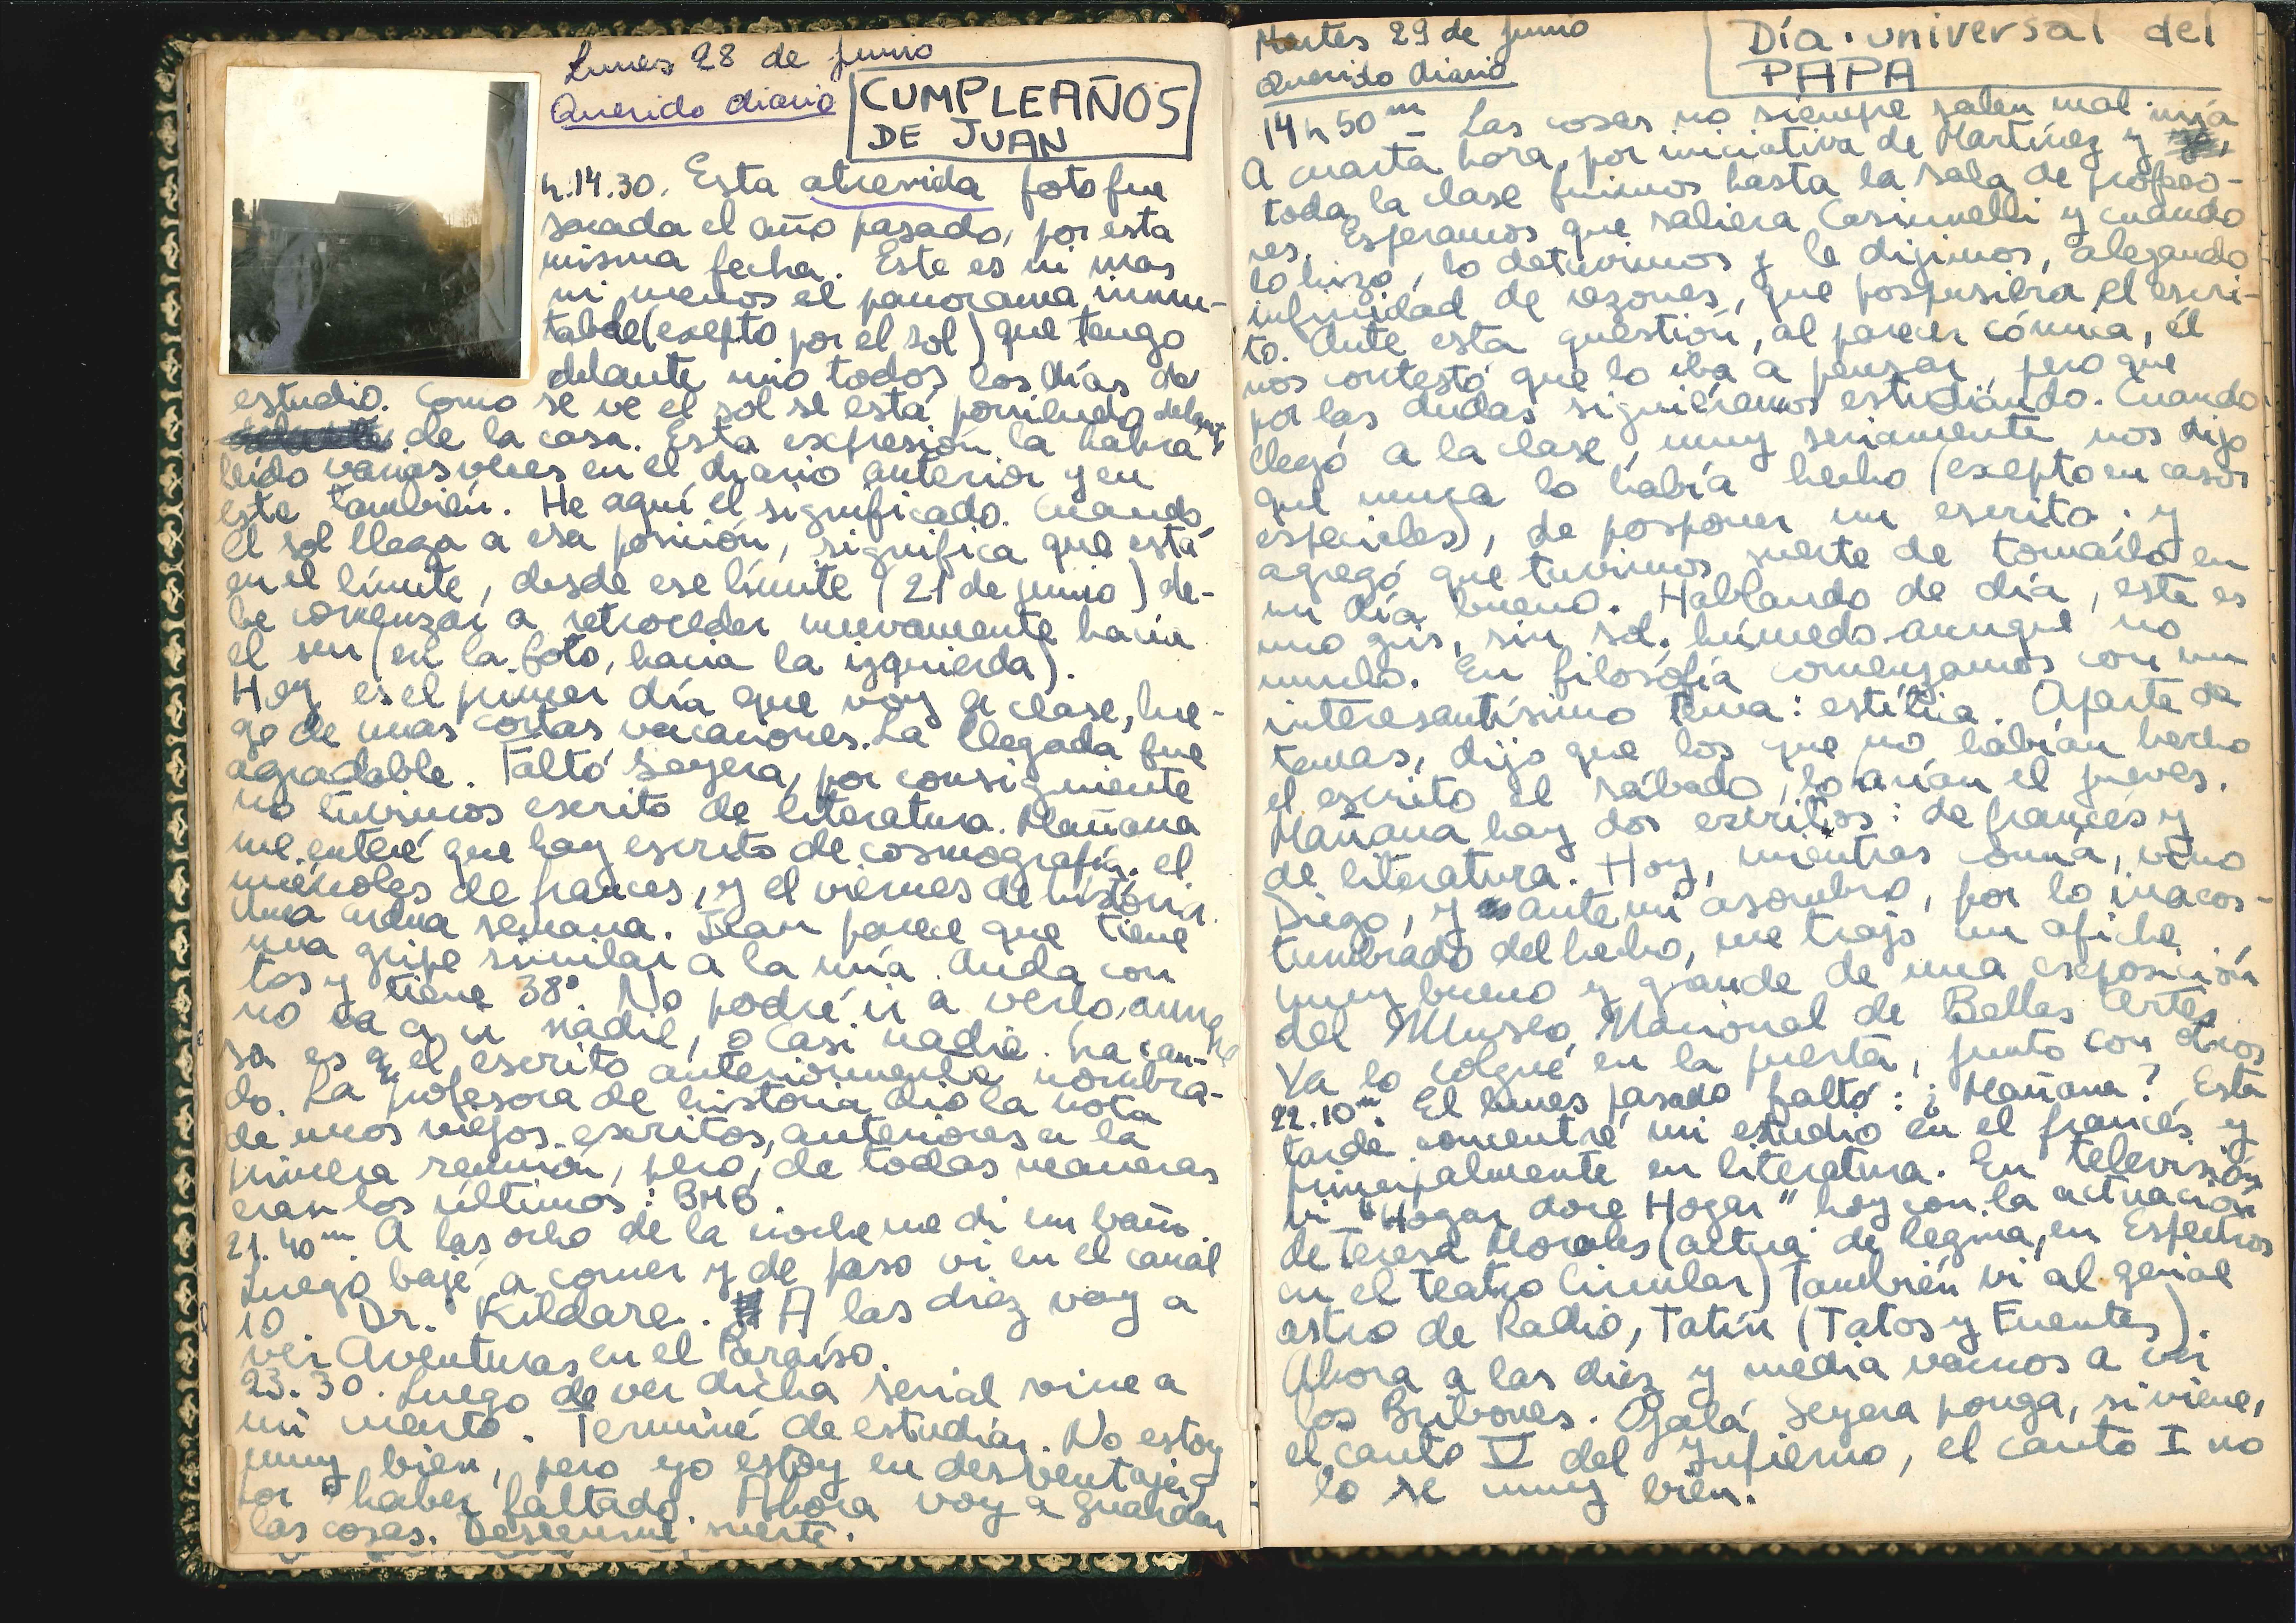 Lunes 28 de junio
Querido diario
CUMPLEAÑOS
DE JUAN
h.14.30. Esta atrevida foto fue
sacada el año pasado, por esta
misma fecha. Este es ni mas
ni menos el panorama inmu-
table (exepto por el sol) que tengo
delante mio todos los días de
estudio. Como se ve el sol se está poniendo delante
de la casa. Esta expresión la habrá
leído varias veces en el diario anterior y en
este también. He aquí el significado. Cuando
el sol llega a esa posición, significa que está
en el límite, desde ese límite (21 de junio) de-
be comenzar a retroceder nuevamente hacia
el sur (en la foto, hacia la izquierda).
Hoy es el primer día que voy a clase, lue-
go de unas cortas vacaciones. La llegada fue
agradable. Faltó Seyera, por consiguiente
no tuvimos escrito de literatura. Mañana
me enteré que hay escrito de cosmografía, el
miércoles de frances, y el viernes de história.
Una semana. Juan parece que tiene
una gripe similar a la mía. Anda con
tos y tiene 38°. No podré ir a verlo, aunque
no va a ir nadie, o casi nadie. La cau-
sa es q el escrito anteriormente nombra-
do. La profesora de historia dio la nota
de unos viejos escritos, anteriores a la
primera reunión, pero, de todas maneras
eran los últimos: BMB
21.40m. A las ocho de la noche me di un baño.
Luego bajé a comer y de paso vi en el canal
10 Dr. Kildare. A las diez voy a
ver Aventuras en el Paraíso.
23.30. Luego de ver dicha serial vine a
mi cuarto. Terminé de estudiar. No estoy
muy bien, pero yo estoy en desventaja
por haber faltado. Ahora voy a guardar
las cosas. Deseenme suerte.
Martes 29 de junio
Querido diario
Día universal del
PAPA
14h 50m Las cosas no siempre salen mal
A cuarta hora, por iniciativa de Martínez y mía,
toda la clase fuimos hasta la sala de profeso-
res. Esperamos que saliera Casinelli y cuando
lo hizo, lo detuvimos y le dijimos, alegando
infinidad de razones, que pospusiera el escri-
to. Ante esta question, al parecer cómica, él
nos contestó que lo iba a pensar, pero que
por las dudas siguiéramos estudiando. Cuando
llegó a la clase, muy seriamente nos dijo
que nunca lo había hecho (exepto en casos
especiales), de posponer un escrito, y
agregó que tuvimos suerte de tomarlo en
un día bueno. Hablando de día, este es
uno gris, sin sol, húmedo aunque no
mucho. En filosofía comenzamos con un
interesantísimo tema: estética. Aparte de
temas, dijo que los que no habían hecho
el escrito el sábado, lo arían el jueves.
Mañana hay dos escritos: de francés y
de literatura. Hoy, mientras comía, vino
Diego, y ante mi asombro, por lo inacos-
tumbrado del hecho, me trajo un afiche
muy bueno y grande de una exposición
del Museo Nacional de Bellas Artes
Ya lo colgué en la puerta, junto con otros
22.10m. El lunes pasado faltó: ¿Mañana? Esta
tarde concentré mi estudio en el francés y
principalmente en literatura. En televisión
vi "Hogar doce Hogar" hoy con la actuación
de Teresa Morales (actua de Regina, en Espectros
en el teatro Circular) También vi al genial
astro de Radio, Tatín (Tatos y Fuentes).
Ahora a las diez y media vamos a ver
los Bribones. Ojalá Seyera ponga, si viene,
el canto V del Infierno, el canto I no
lo se muy bien.